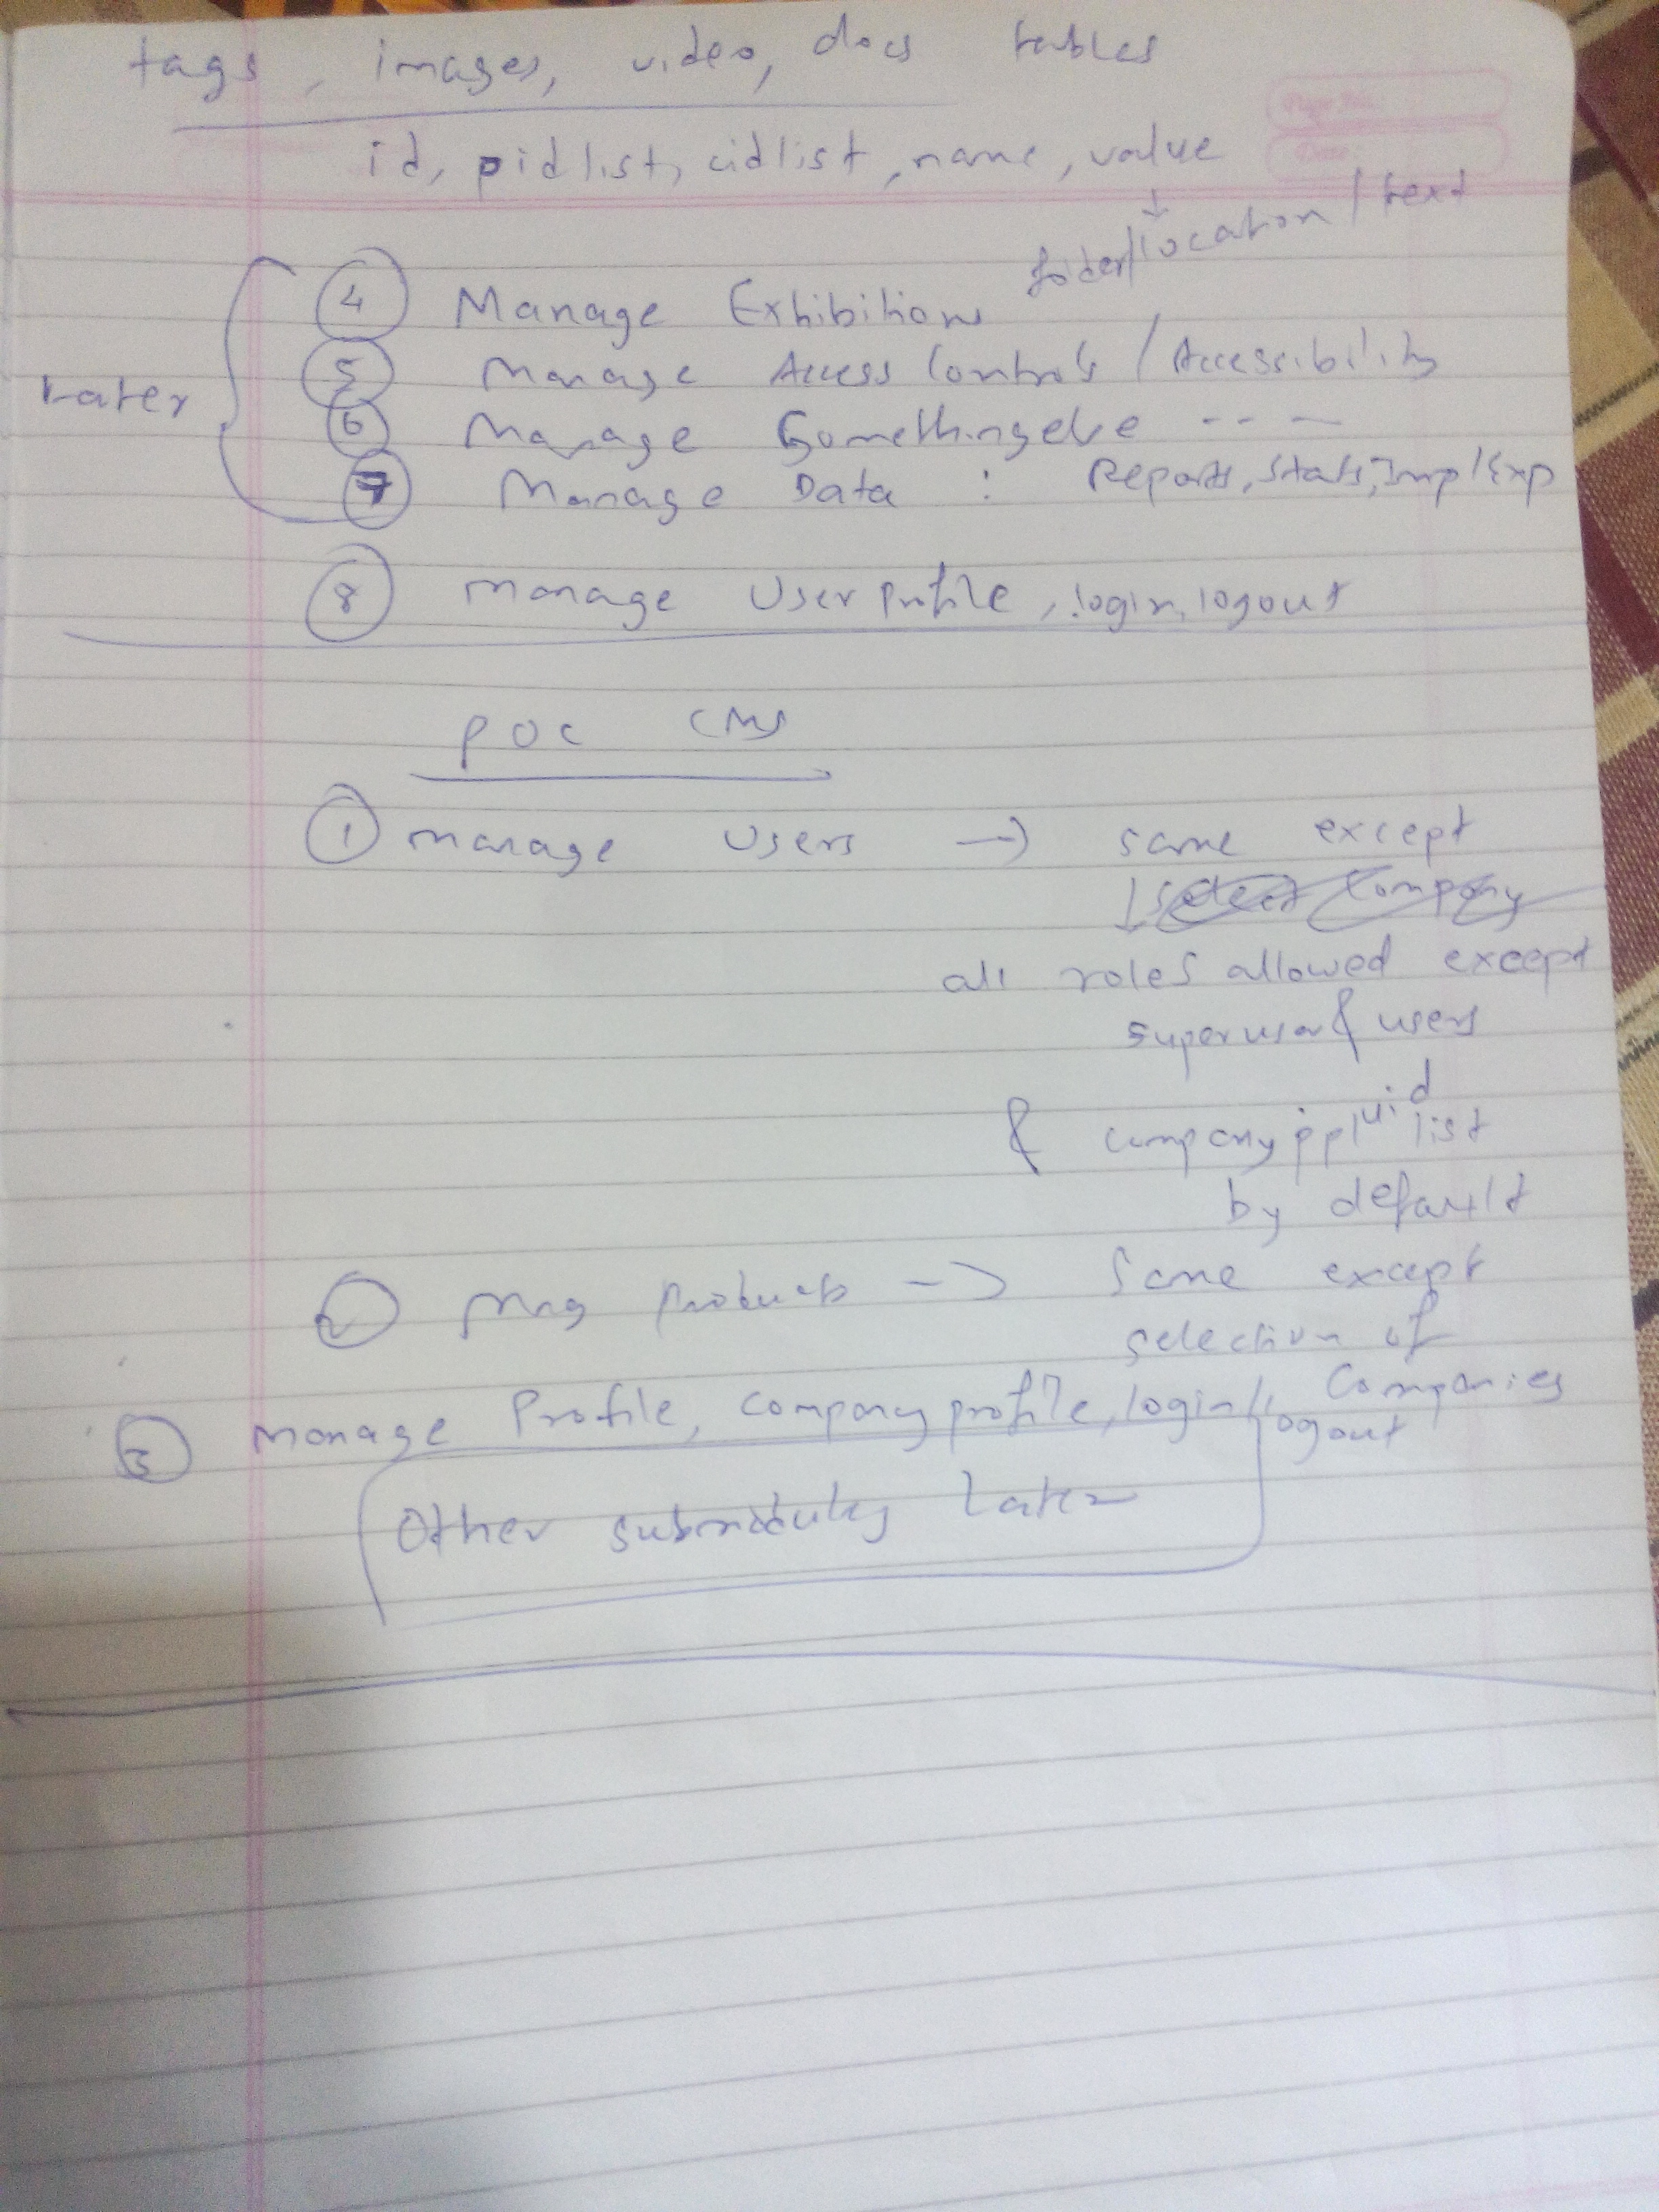 tags, images, video, docs tables
Page No.:
Date:
id, pidlist, cidlist, name, value
folder/location/text
Later
4 Manage Exhibitions
5 Manage Access Controls / Accessibility
6 Manage Somethingelse -- —
7 Manage Data : Reports, Stats, Imp/Exp
8 manage User profile, login, logout
POC CMS
1 manage users → same except
↓ select company
all roles allowed except
superuser & users
& company ppl uid list
by default
2 Mng products → Same except
selection of
Companies
3 manage Profile, company profile, login/logout
Other submodules later